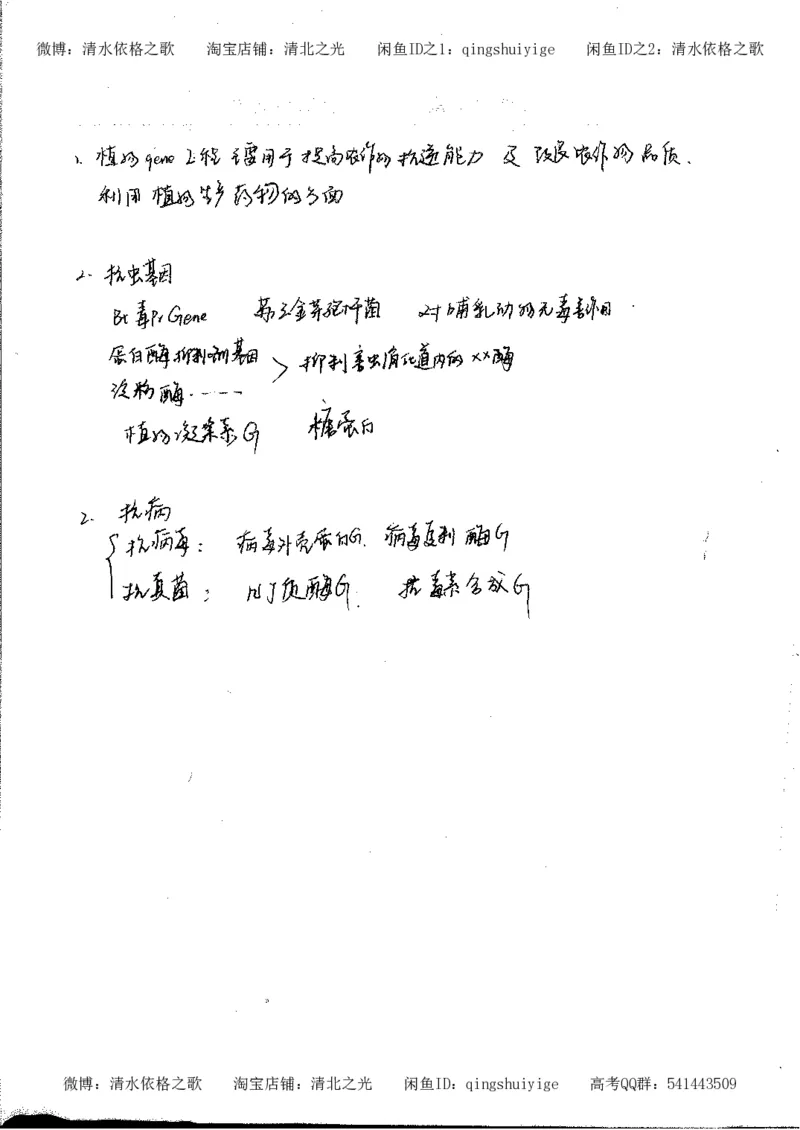 微博：清水依格之歌 淘宝店铺：清北之光 闲鱼ID之1：qingshuiyige 闲鱼ID之2：清水依格之歌
1. 植物gene工程主要用于提高农作物抗逆能力 及 改良农作物品质.
利用植物生产药物的方面
2. 抗虫基因
Bt毒Pr Gene 苏云金芽孢杆菌 对哺乳动物无毒害作用
蛋白酶抑制剂基因 > 抑制害虫消化道内的××酶
淀粉酶……
植物凝集素G 糖蛋白
2. 抗病
抗病毒： 病毒外壳蛋白G. 病毒复制酶G
抗真菌： 几丁质酶G. 抗毒素合成G
微博：清水依格之歌 淘宝店铺：清北之光 闲鱼ID：qingshuiyige 高考QQ群：541443509